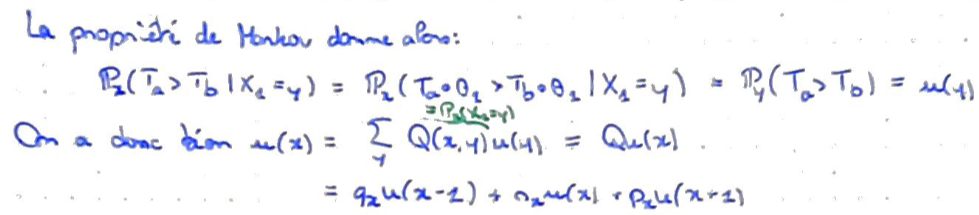 La propriété de Markov donne alors:
ℙₓ(T_a > T_b | X₁ = y) = ℙₓ(T_a∘θ₁ > T_b∘θ₁ | X₁ = y) = ℙ_y(T_a > T_b) = u(y)
= ℙₓ(X₁=y)
On a donc bien u(x) = ∑_y Q(x,y)u(y) = Qu(x).
= qₓu(x-1) + rₓu(x) + pₓu(x+1)